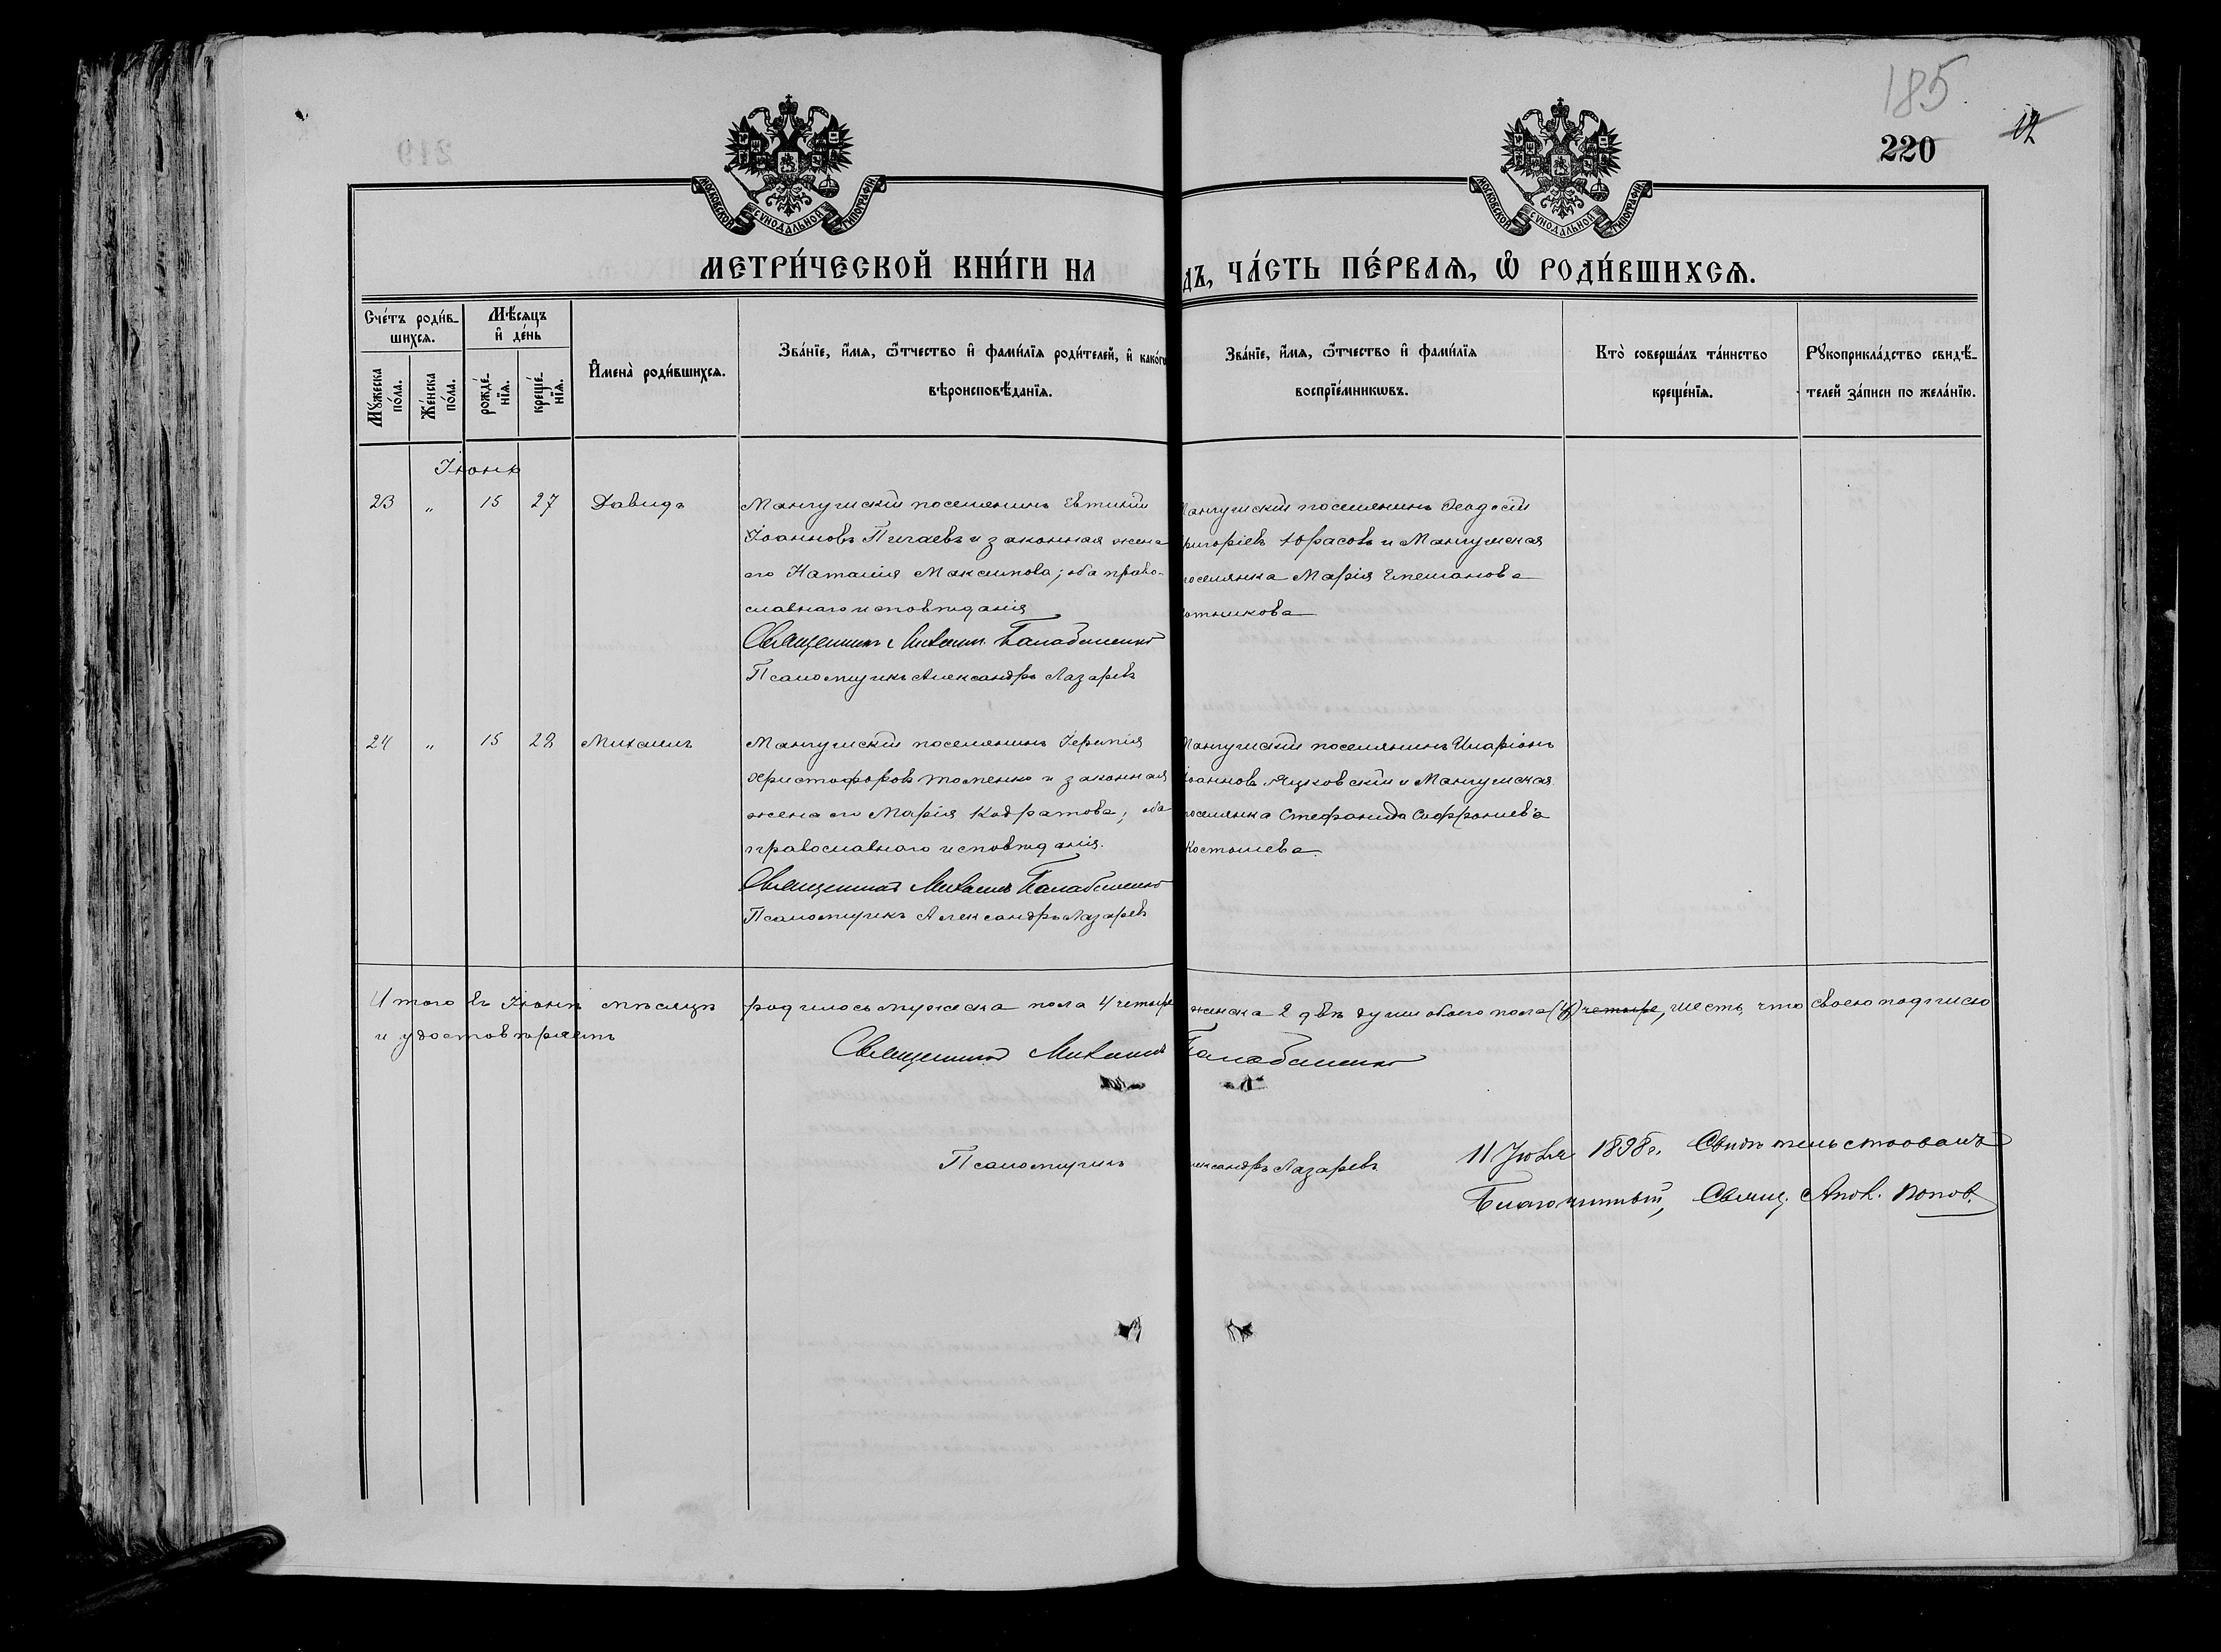 185
220
МОСКОВСКОЙ СѴНОДАЛЬНОЙ ТИПОГРАФІИ
МОСКОВСКОЙ СѴНОДАЛЬНОЙ ТИПОГРАФІИ
МЕТРИ́ЧЕСКОЙ КНИ́ГИ НА
ДЪ, ЧА́СТЬ ПЕ́РВАѦ, Ѡ҆ РОДИ́ВШИХСѦ.
Сче́тъ роди́в-
шихсѧ.
Мѣ́сѧцъ
и҆ де́нь
Мꙋ́жеска
по́ла.
Же́нска
по́ла.
рожде́-
нїѧ.
креще́-
нїѧ.
И҆мена̀ роди́вшихсѧ.
Зва́нїе, и҆́мѧ, ѻ҆́тчество и҆ фами́лїѧ роди́телей, и҆ како́гѡ
вѣроисповѣ́данїѧ.
Зва́нїе, и҆́мѧ, ѻ҆́тчество и҆ фами́лїѧ
воспрїе́мникѡвъ.
Кто̀ соверша́лъ та́инство
креще́нїѧ.
Рꙋкоприкла́дство свидѣ́-
телей за́писи по жела́нїю.
Іюнь
23 " 15 27 Давидъ
Мангушскій поселянинъ Евтихій
Іоанновъ Пичаевъ и законная жена
его Наталія Максимова; оба право-
славнаго исповѣданія
Священникъ Михаилъ Балабаненко
Псаломщикъ Александръ Лазаревъ
ангушскій поселянинъ Ѳеодосій
ригоріевъ Юрасовъ и Мангушская
оселянка Марія Степанова
отникова
24 " 15 28 Михаилъ
Мангушскій поселянинъ Іеремія
Христофоровъ Томенко и законная
жена его Марія Кодратова; оба
православнаго исповѣданія.
Священникъ Михаилъ Балабаненко
Псаломщикъ Александръ Лазаревъ
ангушскій поселянинъ Иларіонъ
оанновъ Яцковскій и Мангушская
оселянка Стефанида Софроніева
Костышева.
Итого въ Іюнѣ мѣсяцѣ родилось мужеска пола 4 четыре женска 2 двѣ души обоего пола (6) четыре, шесть, что своею подписью
и удостовѣряемъ
Священникъ Михаилъ Балабаненко
Псаломщикъ лександръ Лазаревъ
11 Іюля 1898 г. Свидѣтельствовалъ
Благочинный, Свящ. Попов.